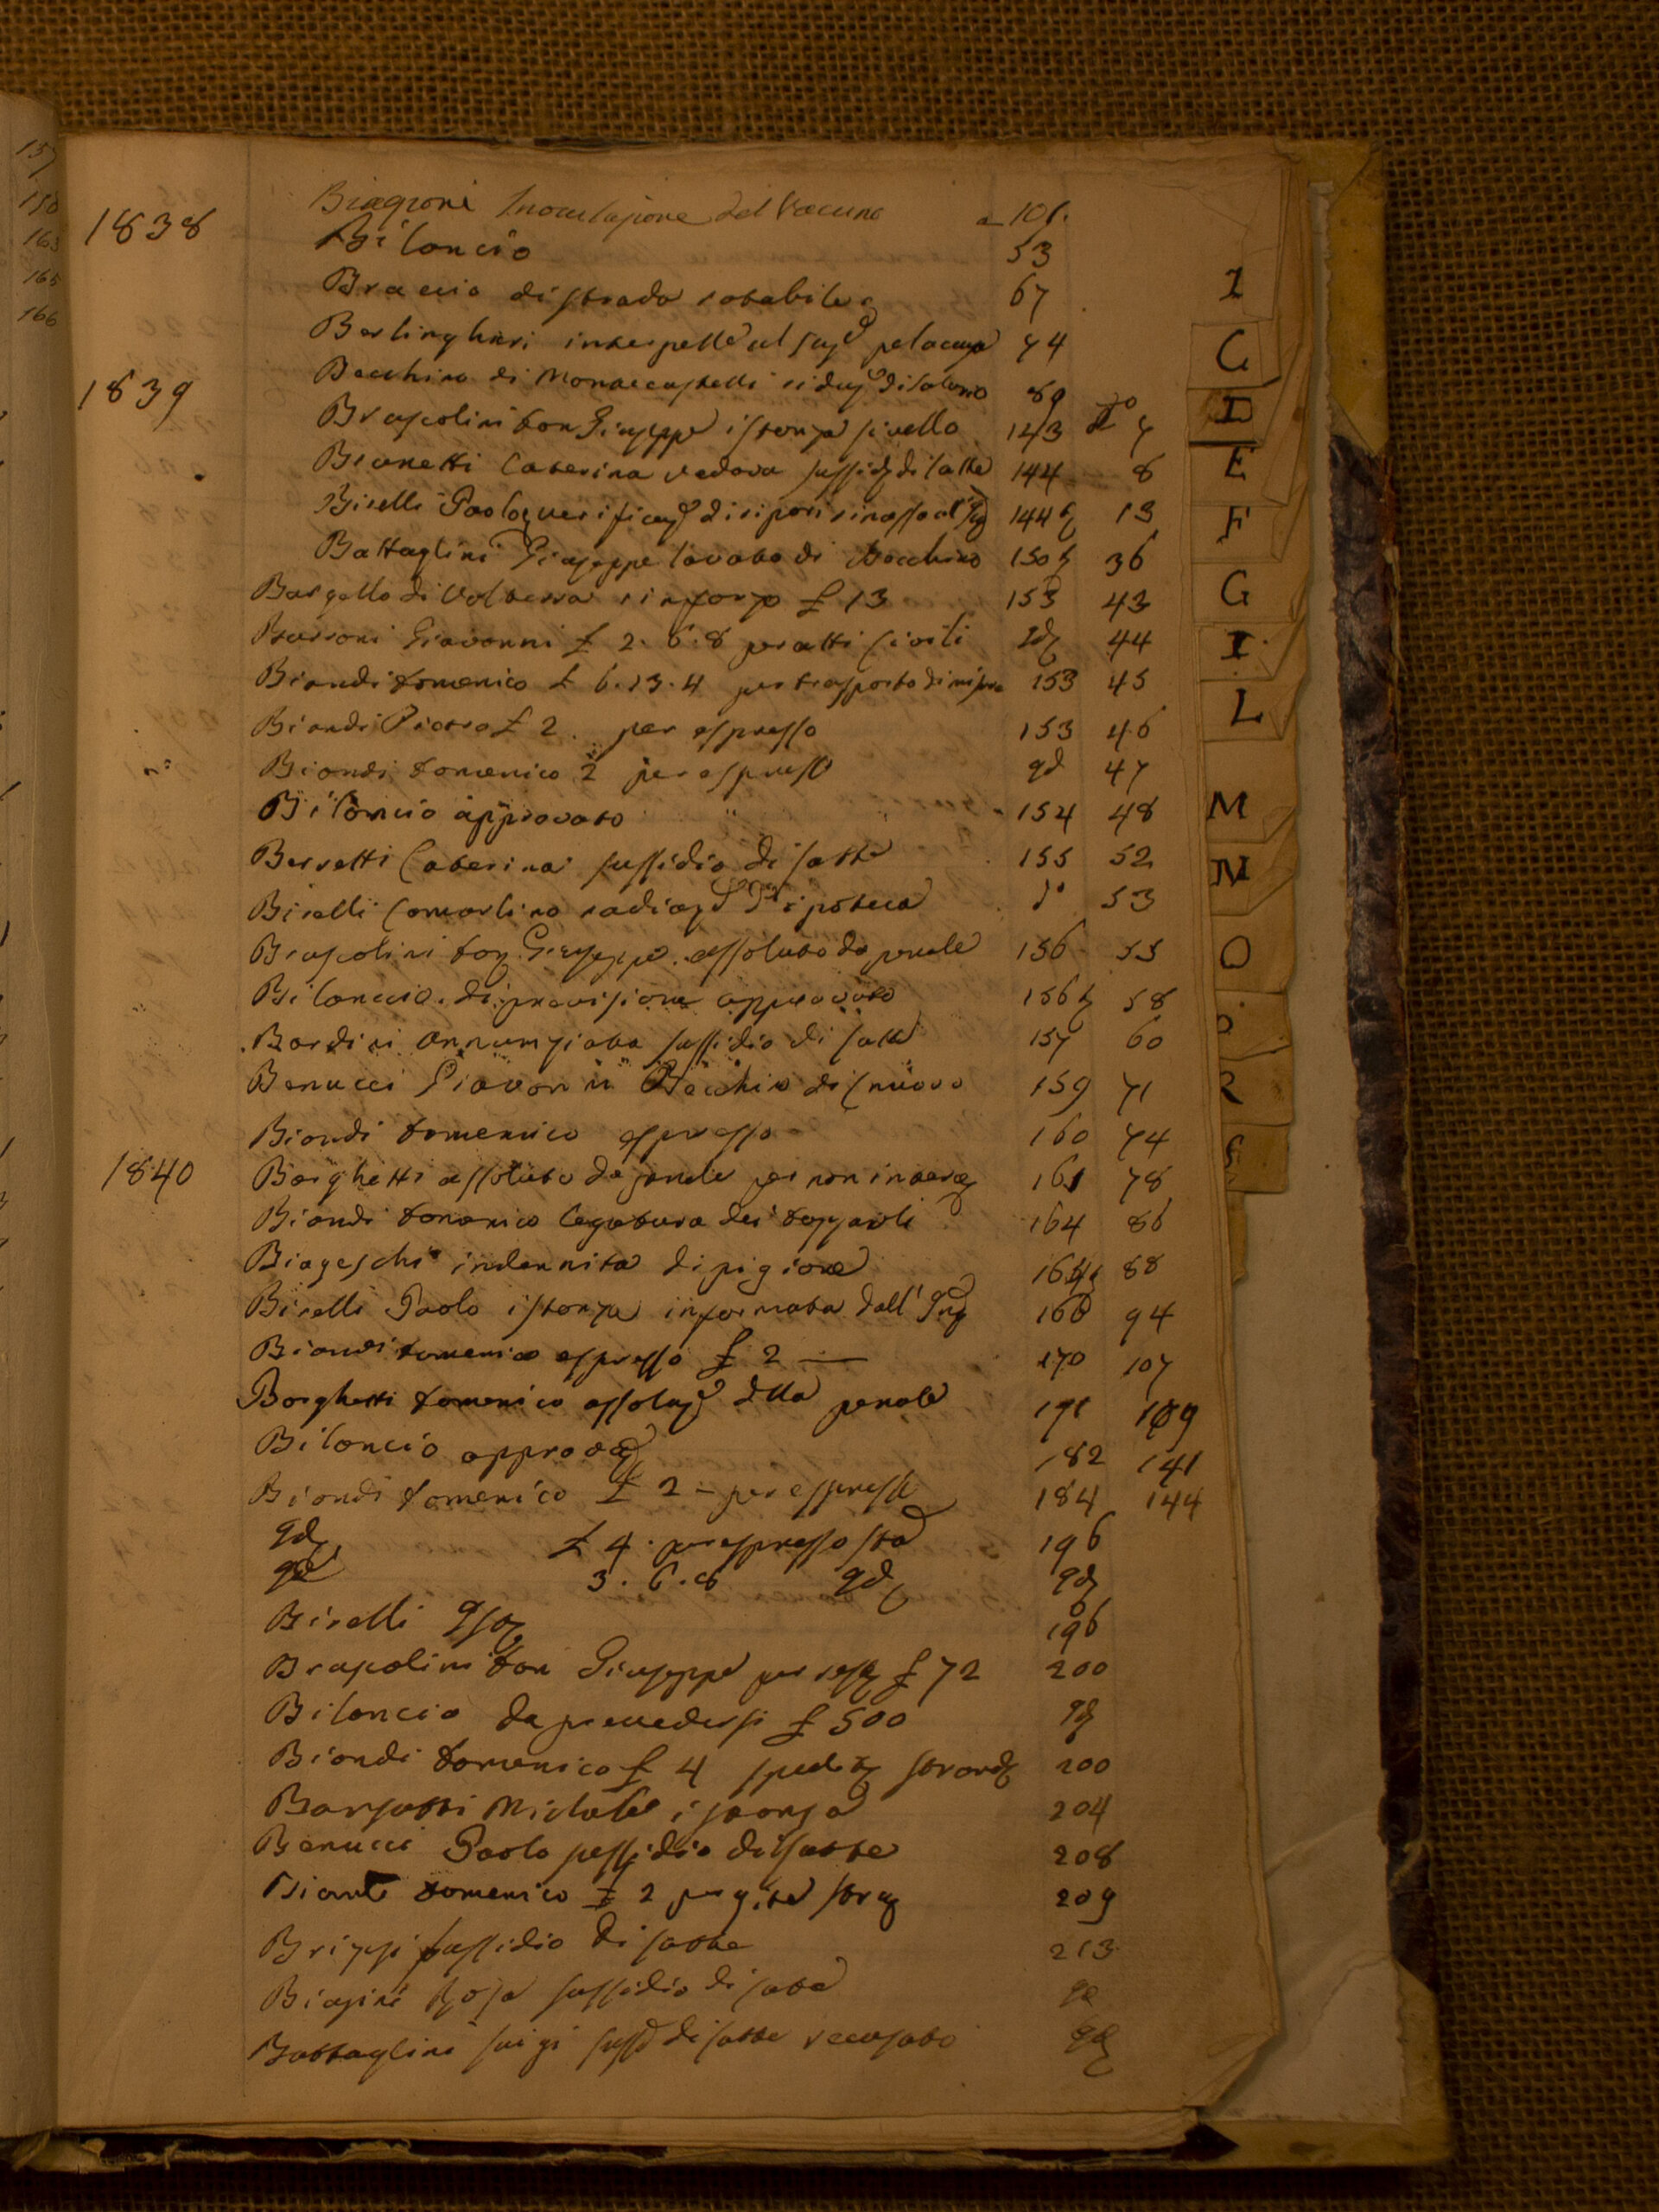 1838 Biagioni Inoculazione del Vaccino a 101.
Bilancio 53
Braccio di strada rotabile 67
Berlingheri 74
1839 Becchino di Montecastelli riduz.e di salario 89
Brascolini Don Giuseppe istanza livello 143 7
Bianetti Caterina vedova sussid. di latte 144 8
Birelli Paolo verificaz.e di 144 13
Battaglini Giuseppe lavoro di Becchino 150 36
Bargello di Volterra rinforzo £ 13 153 43
Barzoni Giovanni £ 2. 6. 8 per atti Civili qd 44
Biondi Domenico £ 6. 13. 4 per trasporto di 153 45
Biondi Pietro £ 2. per espresso 153 46
Biondi Domenico 2 per espresso qd 47
Bilancio approvato 154 48
Berretti Caterina sussidio di latte 155 52
Birelli radiaz.e d' ipoteca d° 53
Brascolini Don Giuseppe assoluto da penale 156 55
Bilancio di previsione approvato 156 58
Bardini Annunziata sussidio di latte 157 60
Benucci Giovanni Becchino di nuovo 159 71
Biondi Domenico espresso 160 74
1840 Borghetti assoluto da penale per non interv 161 78
Biondi Domenico legatura dei 164 86
Biageschi indennita di pigione 164 88
Birelli Paolo istanza informata dall' Ing 166 94
Biondi Domenico espresso £ 2 — 170 107
Borghetti Domenico assoluz.e dlla penale 171 109
Bilancio approvaz 182 141
Biondi Domenico £ 2 - per espresso 184 144
qd £ 4. per espresso 196
qd 3. 6. 8 qd qd
Birelli 196
Brascolini Don Giuseppe per £ 72 200
Bilancio da prevedersi £ 500 qd
Biondi Domenico £ 4 spediz straord 200
Michele istanza 204
Benucci Paolo sussidio di latte 208
Biondi Domenico £ 2 per gite 209
Brizzi sussidio di latte 213
Biagini Rosa sussidio di latte qd
Battaglini Luigi suss.o di latte recusato qd
157
158
163
165
166
I
C
D
E
F
G
I
L
M
N
O